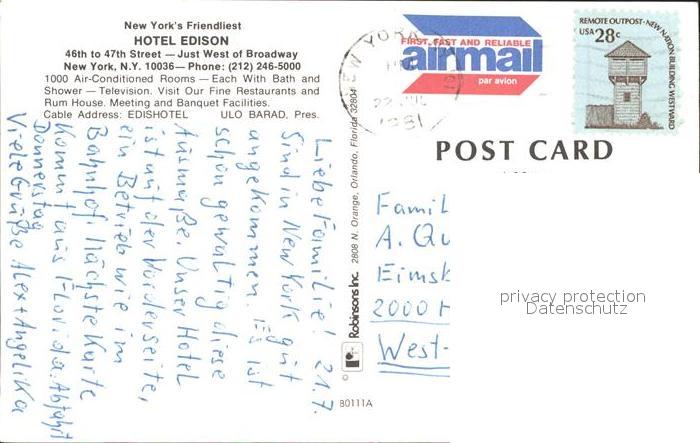 New York's Friendliest
HOTEL EDISON
46th to 47th Street — Just West of Broadway
New York, N.Y. 10036 — Phone: (212) 246-5000
1000 Air-Conditioned Rooms — Each With Bath and
Shower — Television. Visit Our Fine Restaurants and
Rum House. Meeting and Banquet Facilities.
Cable Address: EDISHOTEL ULO BARAD, Pres.
Liebe Familie! 21.7.
Sind in New York gut
angekommen. Es ist
schon gewaltig diese
Ausmaße. Unser Hotel
ist auf der Vorderseite,
ein Betrieb wie im
Bahnhof. Nächste Karte
kommt aus Florida. Abfahrt
Donnerstag
Viele Grüße Alex + Angelika
Robinsons Inc. 2808 N. Orange, Orlando, Florida 32804
80111A
NEW YORK
1981
FIRST, FAST AND RELIABLE
airmail
par avion
REMOTE OUTPOST · NEW NATION BUILDING WESTWARD
USA 28c
POST CARD
Famil
A. Qu
Eimsk
2000 H
West-
privacy protection
Datenschutz